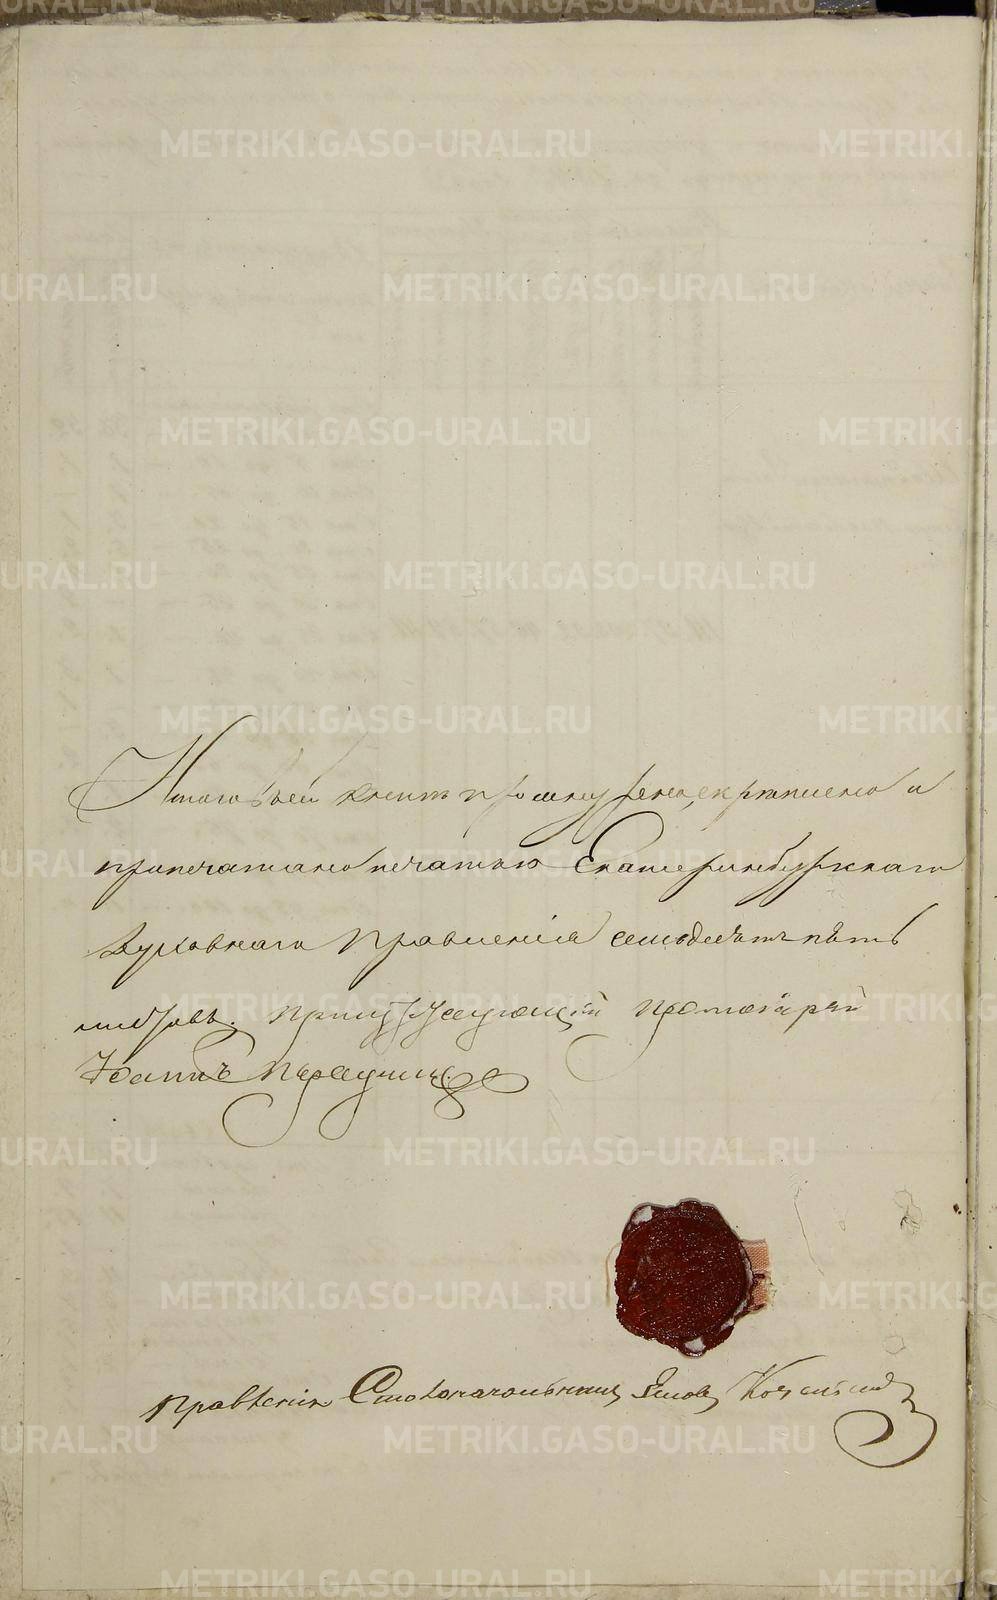 Итого въ сей книгѣ прошнуровано, скрѣплено и
припечатано печатью Екатеринбургскаго
Духовнаго Правленія семьдесятъ пять
листовъ. Присутствующій Протоіерей
Іоаннъ
Правленія Столоначальникъ Яковъ
METRIKI.GASO-URAL.RU